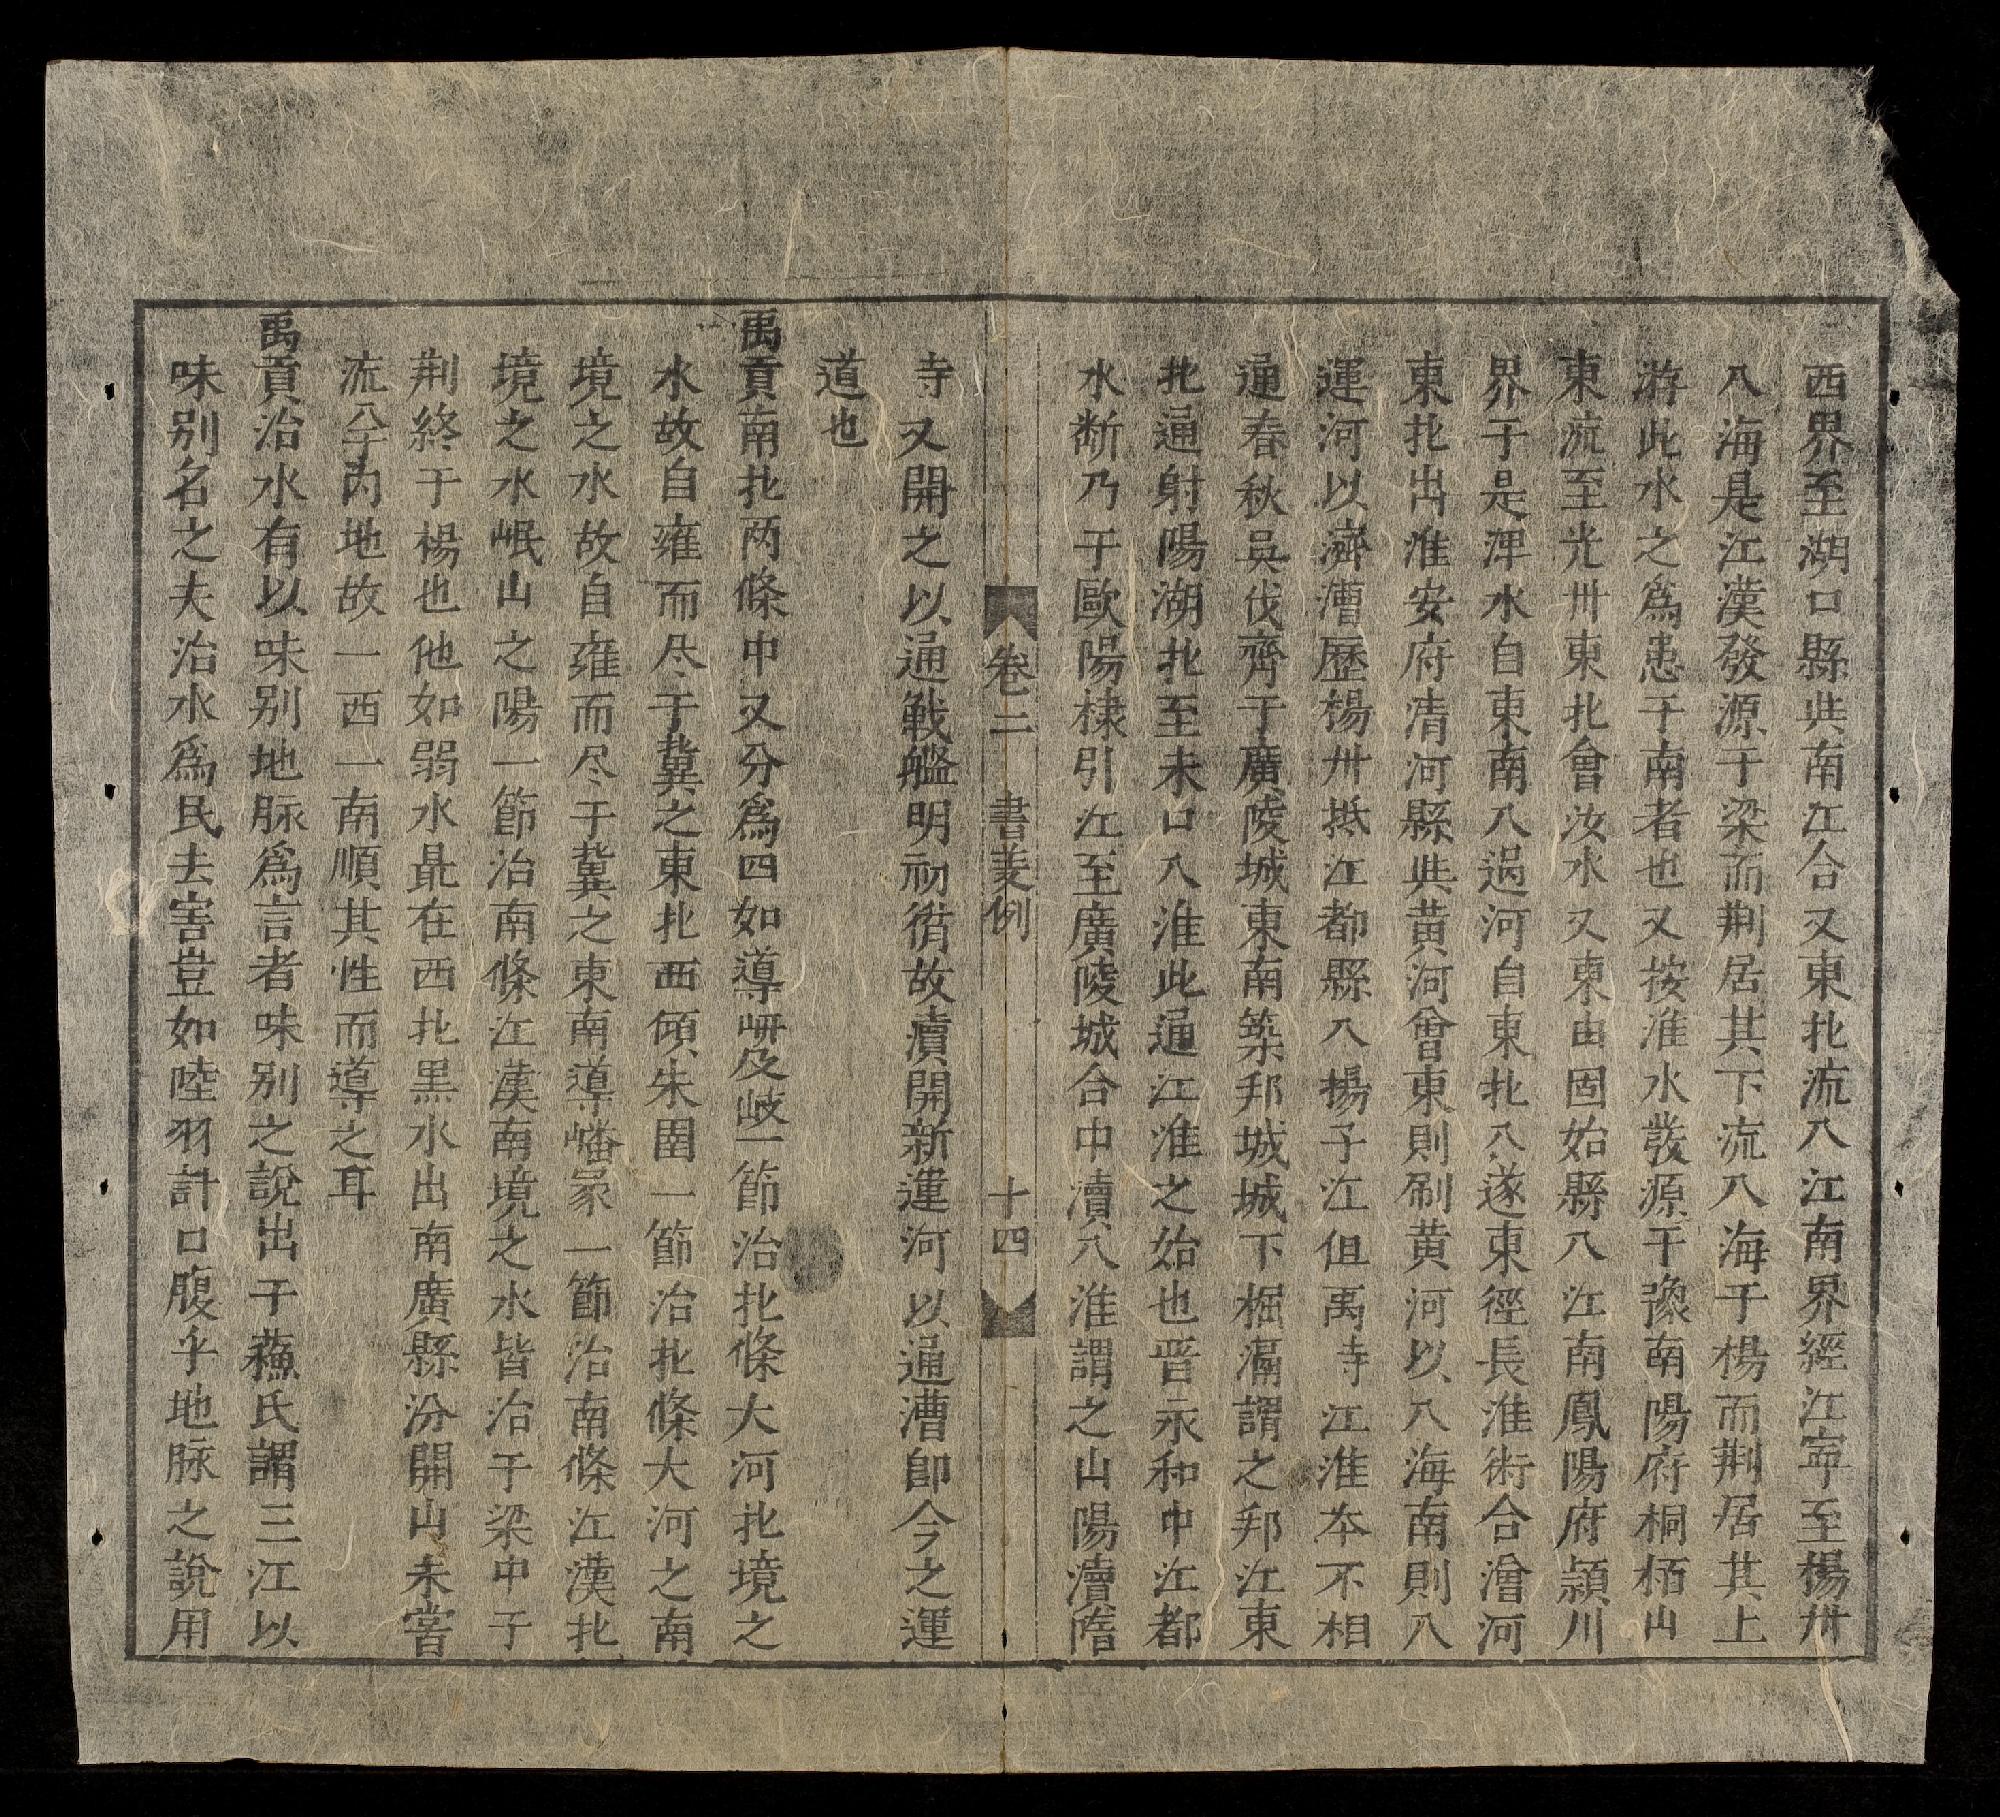 西界至湖口縣與南江合又東北流入江南界經江寧至楊州
入海是江漢發源于梁而荆居其下流入海于楊而荆居其上
游此水之為患于南者也又按淮水發源于豫南陽府桐栢山
東流至光州東北會汝水又東由固始縣入江南鳳陽府頴川
界于是淠水自東南入過河自東北入遂東徑長淮術合澮河
東北出淮安府清河縣與黃河會東則刷黃河以入海南則入
運河以濟漕歷楊州抵江都縣入揚子江但禹時江淮本不相
通春秋吳伐齊于廣陵城東南築邗城城下掘溝謂之邗江東
北通射陽湖北至末口入淮此通江淮之始也晋永和中江都
水断乃于歐陽棣引江至廣陵城合中瀆入淮謂之山陽瀆隋
卷二 書義例 十四
寺又開之以通戰艦明初循故瀆開新運河以通漕即今之運
道也
禹貢南北两條中又分為四如導岍及岐一節治北條大河北境之
水故自雍而尽于冀之東北西傾朱圉一節治北條大河之南
境之水故自雍而尽于冀之東南導嶓冢一節治南條江漢北
境之水岷山之陽一節治南條江漢南境之水皆治于梁中于
荆終于楊也他如弱水最在西北黑水出南廣縣汾開山未甞
流入于内地故一西一南順其性而導之耳
禹貢治水有以味别地脉為言者味别之說出于蘓氏謂三江以
味别名之夫治水為民去害豈如陸羽計口腹乎地脉之說用